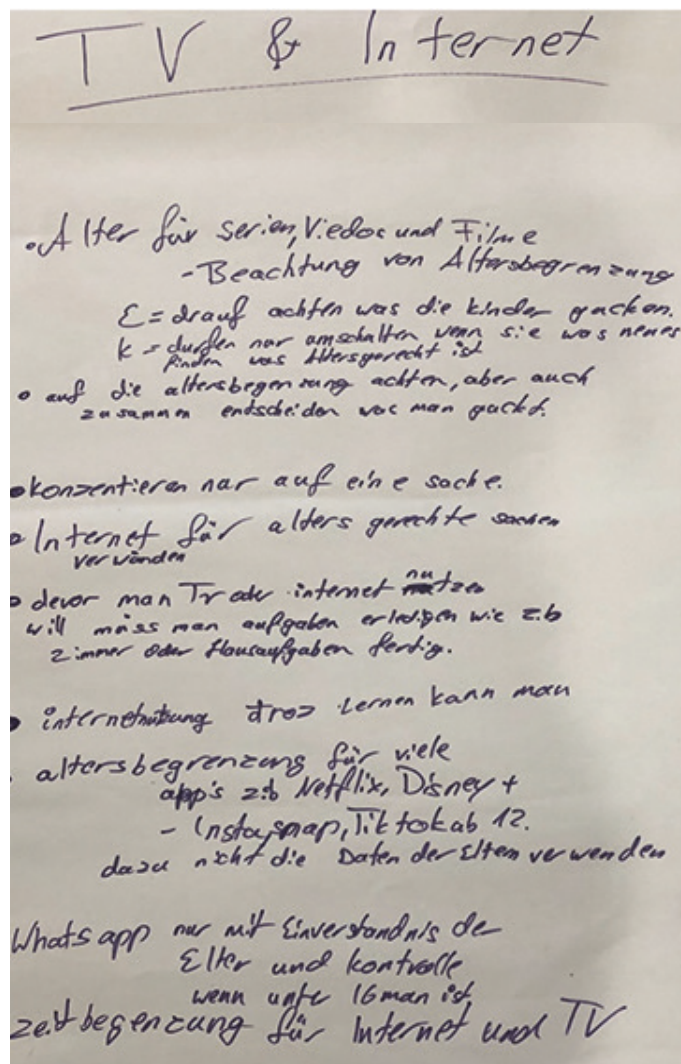 TV & Internet
• Alter für Serien, Viedos und Filme
- Beachtung von Altersbegrenzung
E = drauf achten was die kinder gucken.
K = durfen nur umschalten wenn sie was neues
finden was Altersgerecht ist
• auf die altersbegenzung achten, aber auch
zusammen entscheiden was man guckt.
• konzentieren nur auf eine sache.
• Internet für alters gerechte sachen
verwänden
• devor man Tv oder internet nutzen
will müss man aufgaben erledigen wie z.b
zimmer oder Hausaufgaben fertig.
• internetnutzung troz Lernen kann man
• altersbegrenzung für viele
app's z.b Netflix, Disney +
- Insta, snap, Tik tok ab 12.
dazu nicht die Daten der Eltern verwenden
Whatsapp nur mit Einverständnis der
Elter und kontrolle
wenn unter 16 man ist.
zeitbegenzung für Internet und TV